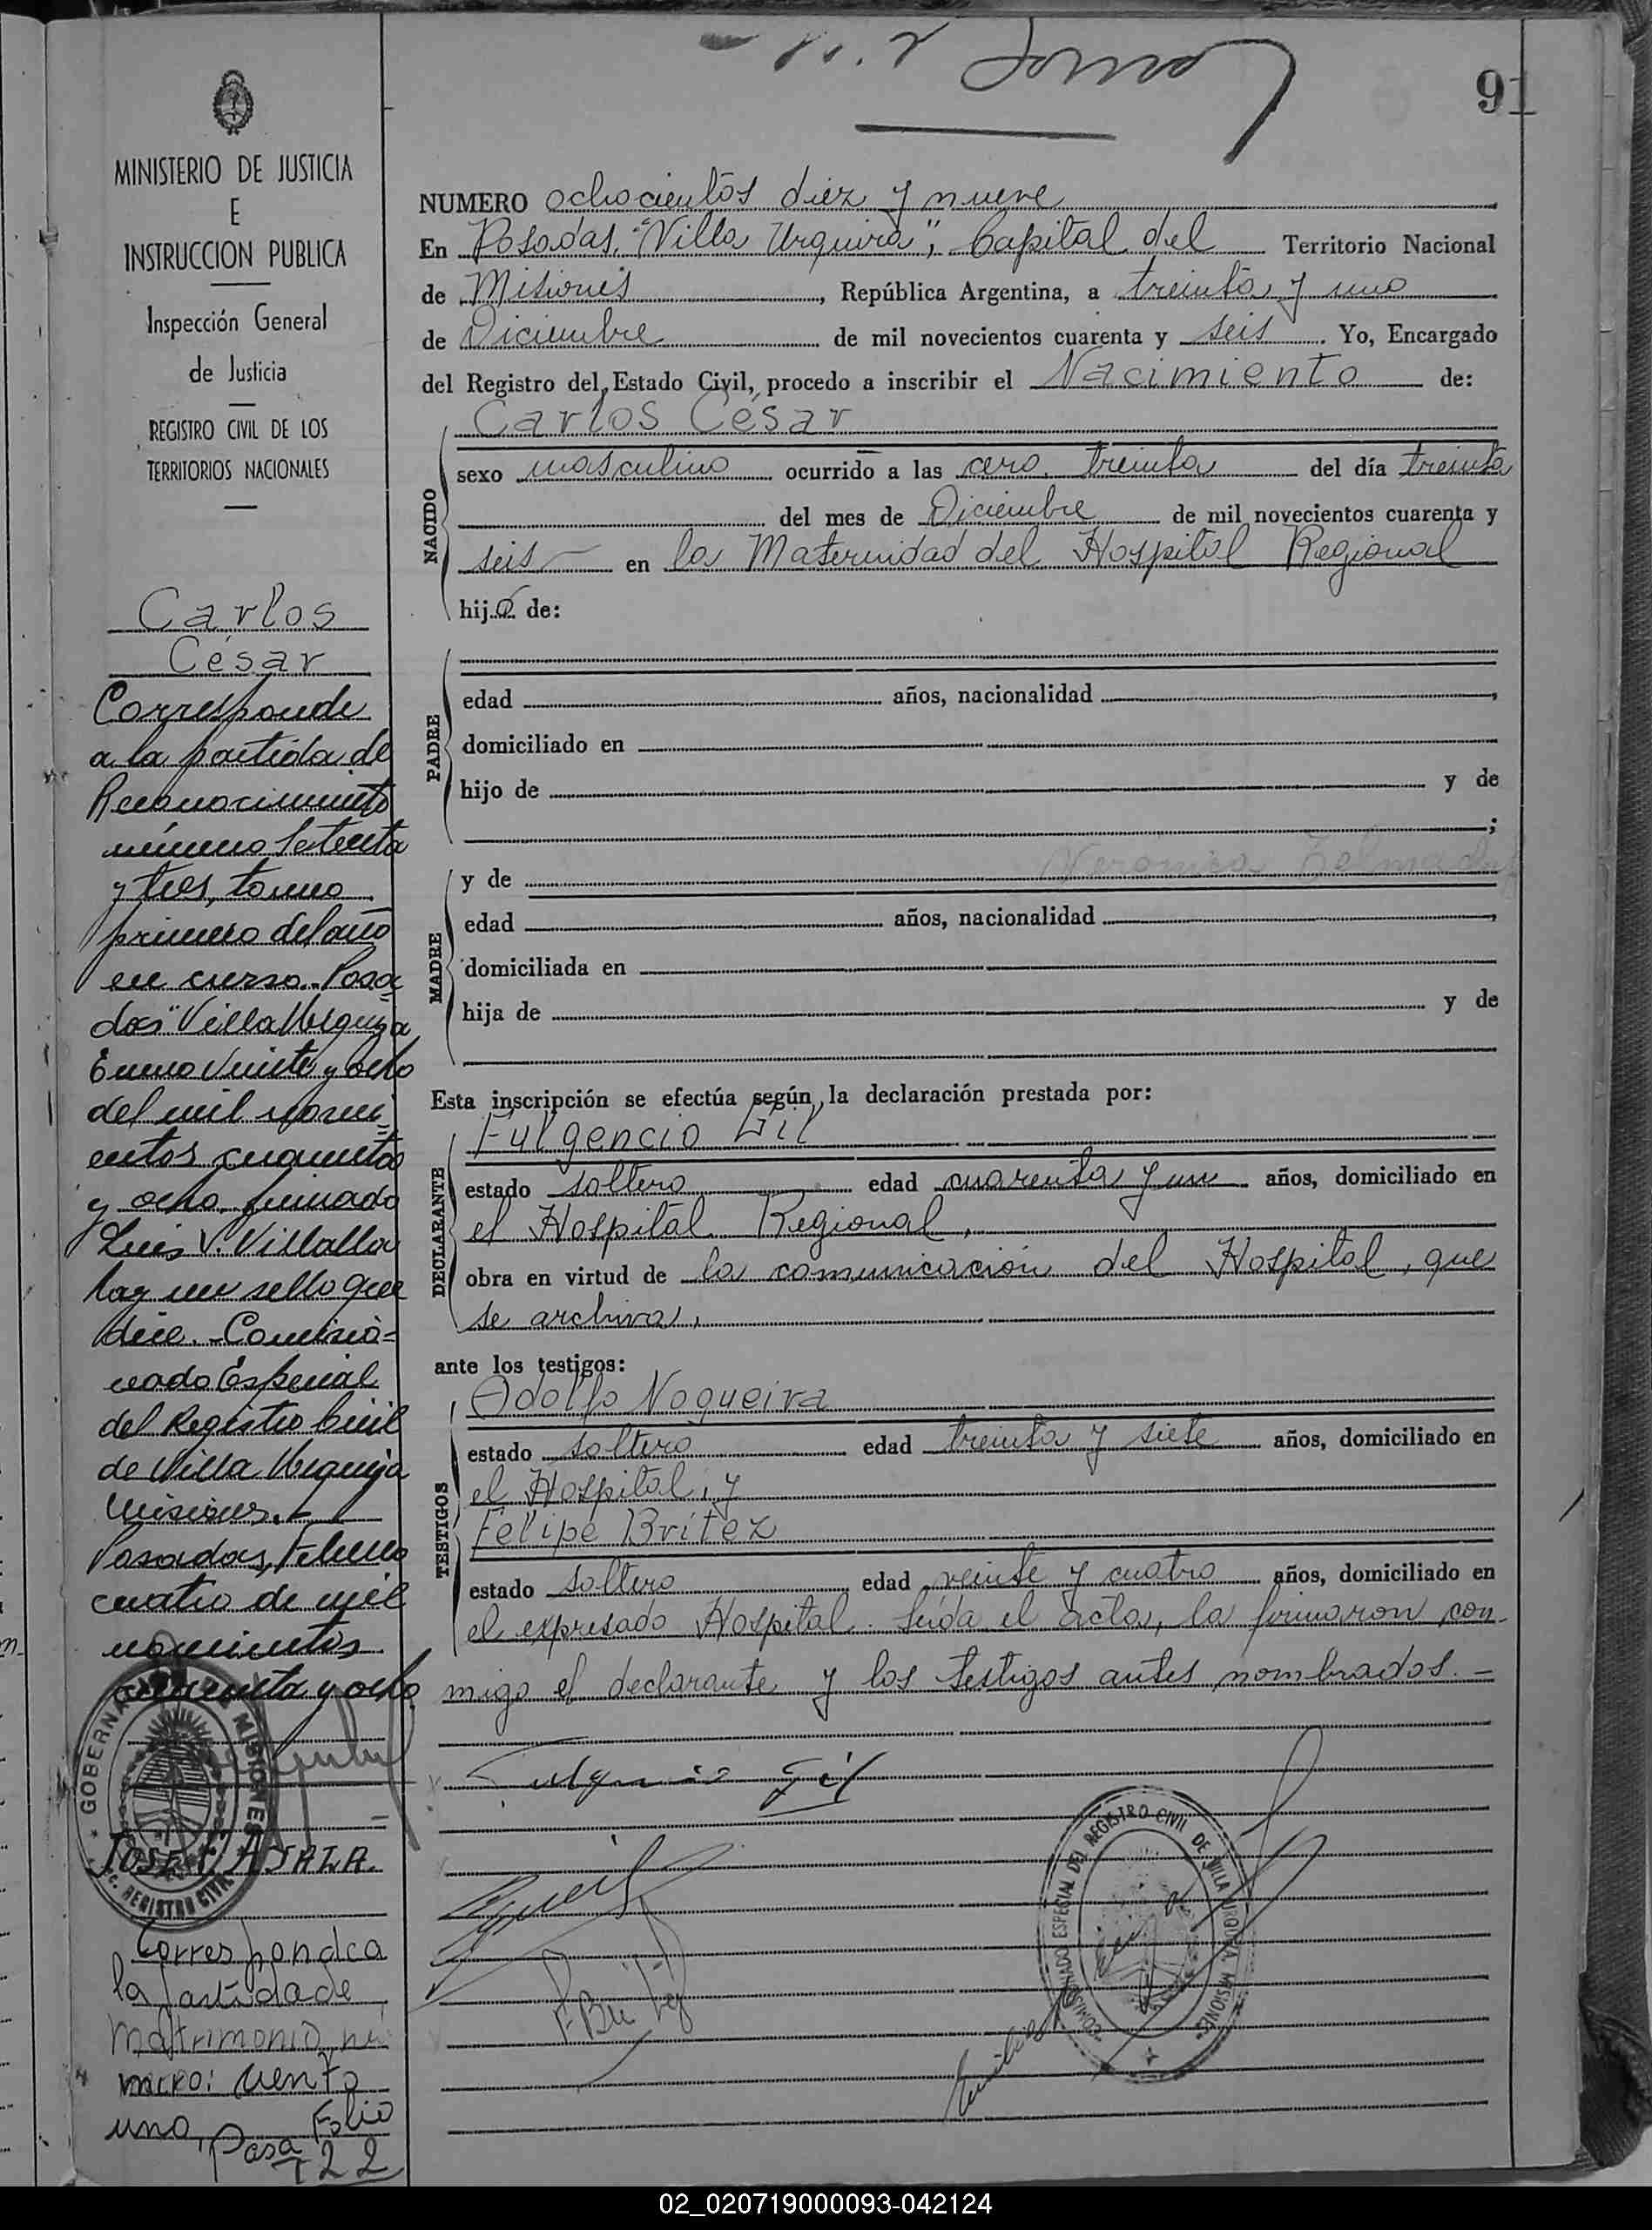 91
MINISTERIO DE JUSTICIA
E
INSTRUCCION PUBLICA
Inspección General
de Justicia
REGISTRO CIVIL DE LOS
TERRITORIOS NACIONALES
Carlos
César
Corresponde
a la partida de
Reconocimiento
número Setenta
y tres, tomo
primero del año
en curso. Posa
das "Villa Urquiza
Enero Veinte y ocho
del mil noveci
entos cuarenta
y ocho firmado
Luis V. Villalba
hay un sello que
dice. - Comisio-
nado Especial
del Registro Civil
de Villa Urquiza
Misiones.
Posadas, Febrero
cuatro de mil
novecientos
cuarenta y ocho
GOBERNA MISIONES
REGISTRO CIVIL
JOSE AJALA.
Corresponde a
la partida de
Matrimonio nú
mero: ciento
uno, Pasa Folio
122
NUMERO ochocientos diez y nueve
En Posadas, "Villa Urquiza", Capital del Territorio Nacional
de Misiones, República Argentina, a treinta y uno
de Diciembre de mil novecientos cuarenta y seis. Yo, Encargado
del Registro del Estado Civil, procedo a inscribir el Nacimiento de:
Carlos César
NACIDO
sexo masculino ocurrido a las cero, treinta del día treinta
del mes de Diciembre de mil novecientos cuarenta y
seis en la Maternidad del Hospital Regional
hijo de:
PADRE
edad años, nacionalidad ,
domiciliado en
hijo de y de
;
Veronica Telma
MADRE
y de
edad años, nacionalidad ,
domiciliada en
hija de y de
Esta inscripción se efectúa según la declaración prestada por:
DECLARANTE
Fulgencio Gil
estado soltero edad cuarenta y un años, domiciliado en
el Hospital Regional,
obra en virtud de la comunicación del Hospital, que
se archiva,
ante los testigos:
TESTIGOS
Adolfo Nogueira
estado soltero edad treinta y siete años, domiciliado en
el Hospital, y
Felipe Britez
estado soltero edad veinte y cuatro años, domiciliado en
el expresado Hospital. Leída el acta, la firmaron con-
migo el declarante y los testigos antes nombrados. -
Fulgencio Gil
F. Britez
COMISIONADO ESPECIAL DEL REGISTRO CIVIL DE VILLA URQUIZA. MISIONES
02_020719000093-042124